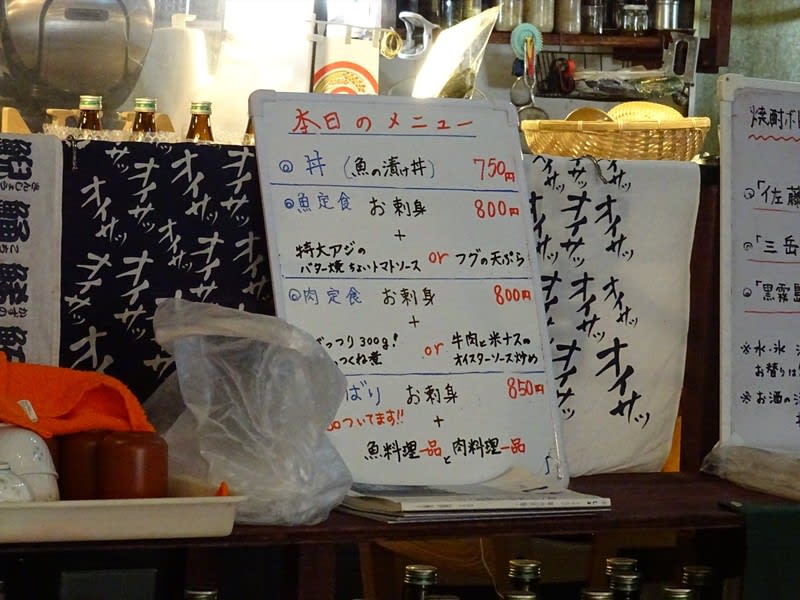 本日のメニュー
◎丼（魚の漬け丼） 750円
◎魚定食 お刺身 800円
+
特大アジの
バター焼 ちょいトマトソース or フグの天ぷら
◎肉定食 お刺身 800円
+
がっつり300g! 牛肉と米ナスの
つくね煮 or オイスターソース炒め
ばり お刺身 850円
ついてます!! +
魚料理一品と肉料理一品
オイサッ
オイサッ
オイサッ
オイサッ
オイサッ
オイサッ
オイサッ
オイサッ
オイサッ
焼酎ボ
◎「佐藤
◎「三岳
◎「黒霧島
※水・氷
お替りは
※お酒の